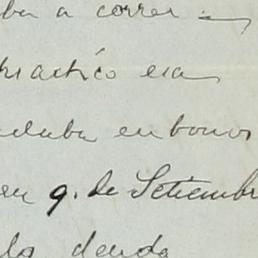 ba a correr
practico era
daba en bonos
en 9. de Setiembr
la deuda